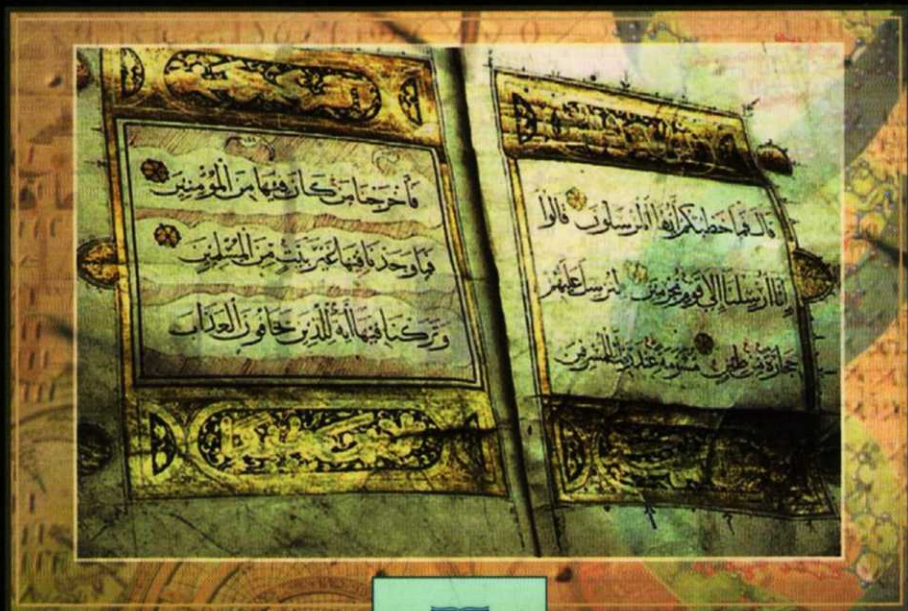 قال فما خطبكم أيها المرسلون قالوا
إنا أرسلنا إلى قوم مجرمين لنرسل عليهم
حجارة من طين مسومة عند ربك للمسرفين
فأخرجنا من كان فيها من المؤمنين
فما وجدنا فيها غير بيت من المسلمين
وتركنا فيها آية للذين يخافون العذاب